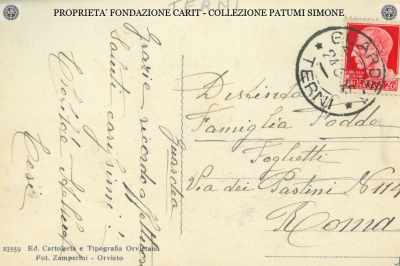 PROPRIETA' FONDAZIONE CARIT - COLLEZIONE PATUMI SIMONE
TERNI
GUARDEA
TERNI
20
Guardea
Grazie ricordo
Saluti carissimi!
Distinta
Famiglia
Foglietti
Via dei Pastini N 114
Roma
23559 Ed. Cartoleria e Tipografia Orvietana
Fot. Zamperini - Orvieto